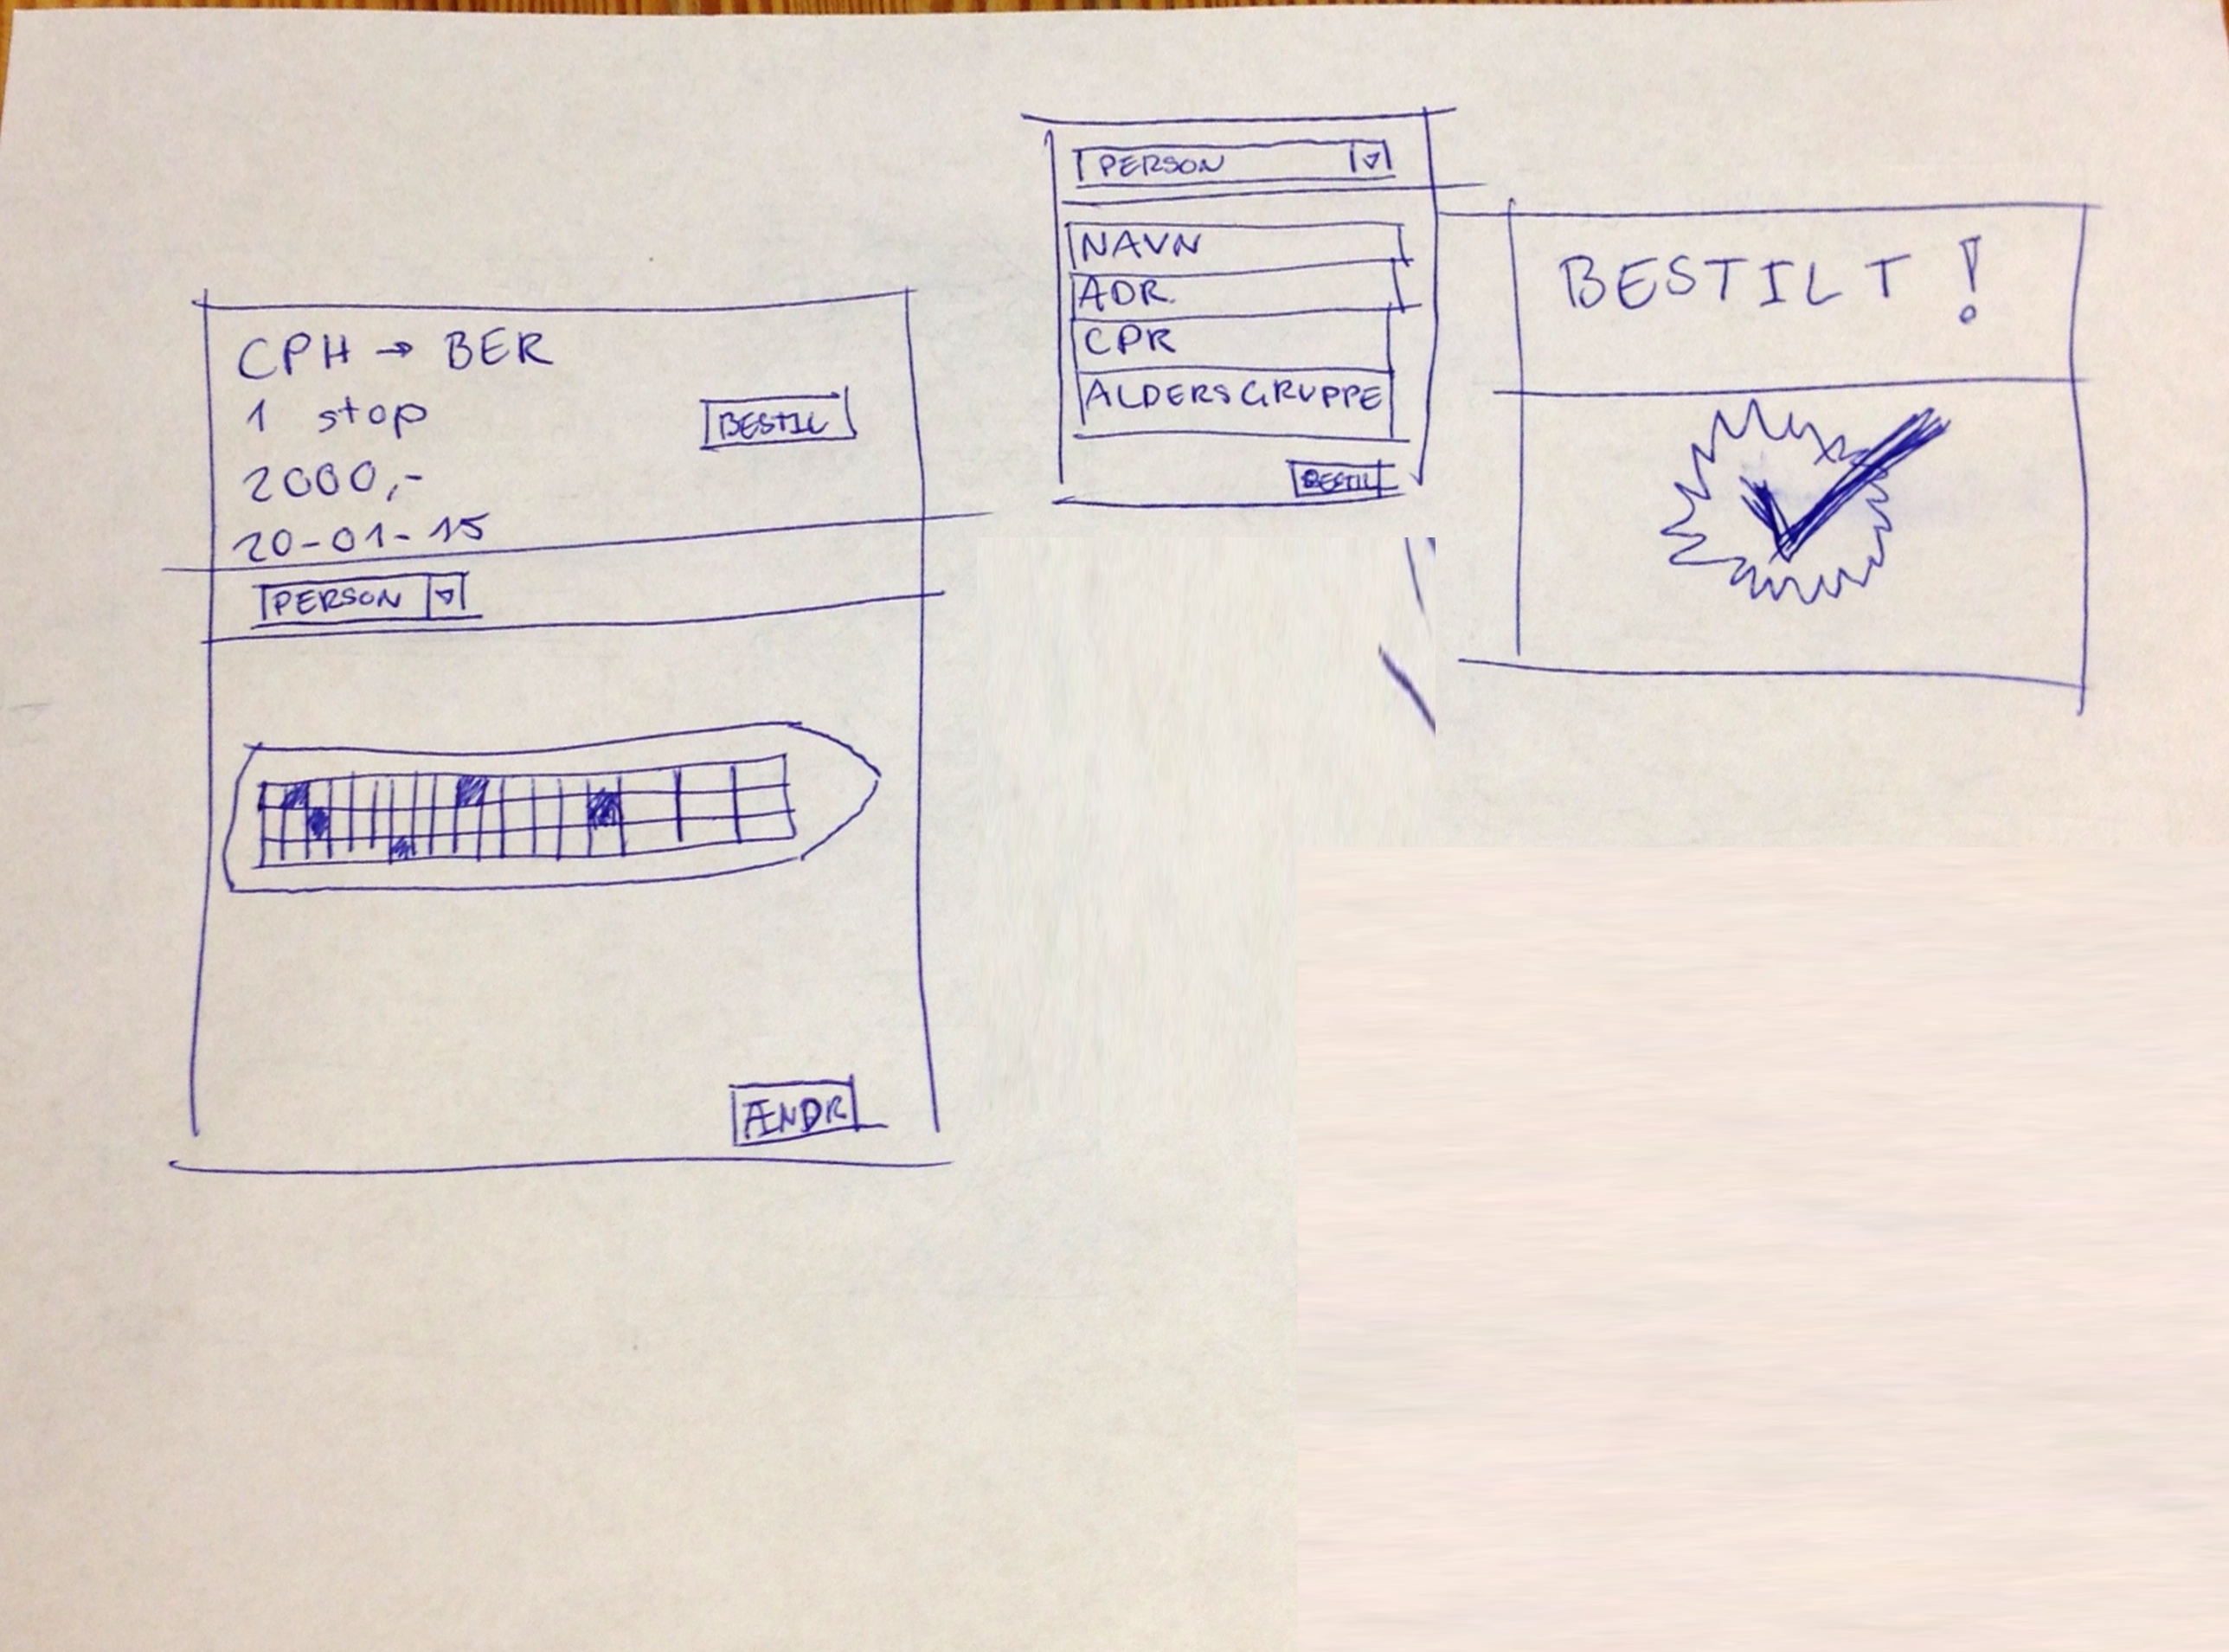 CPH → BER
1 stop
BESTIL
2000,-
20-01-15
PERSON
ÆNDR
PERSON
NAVN
ADR.
CPR
ALDERSGRUPPE
BESTIL
BESTILT !